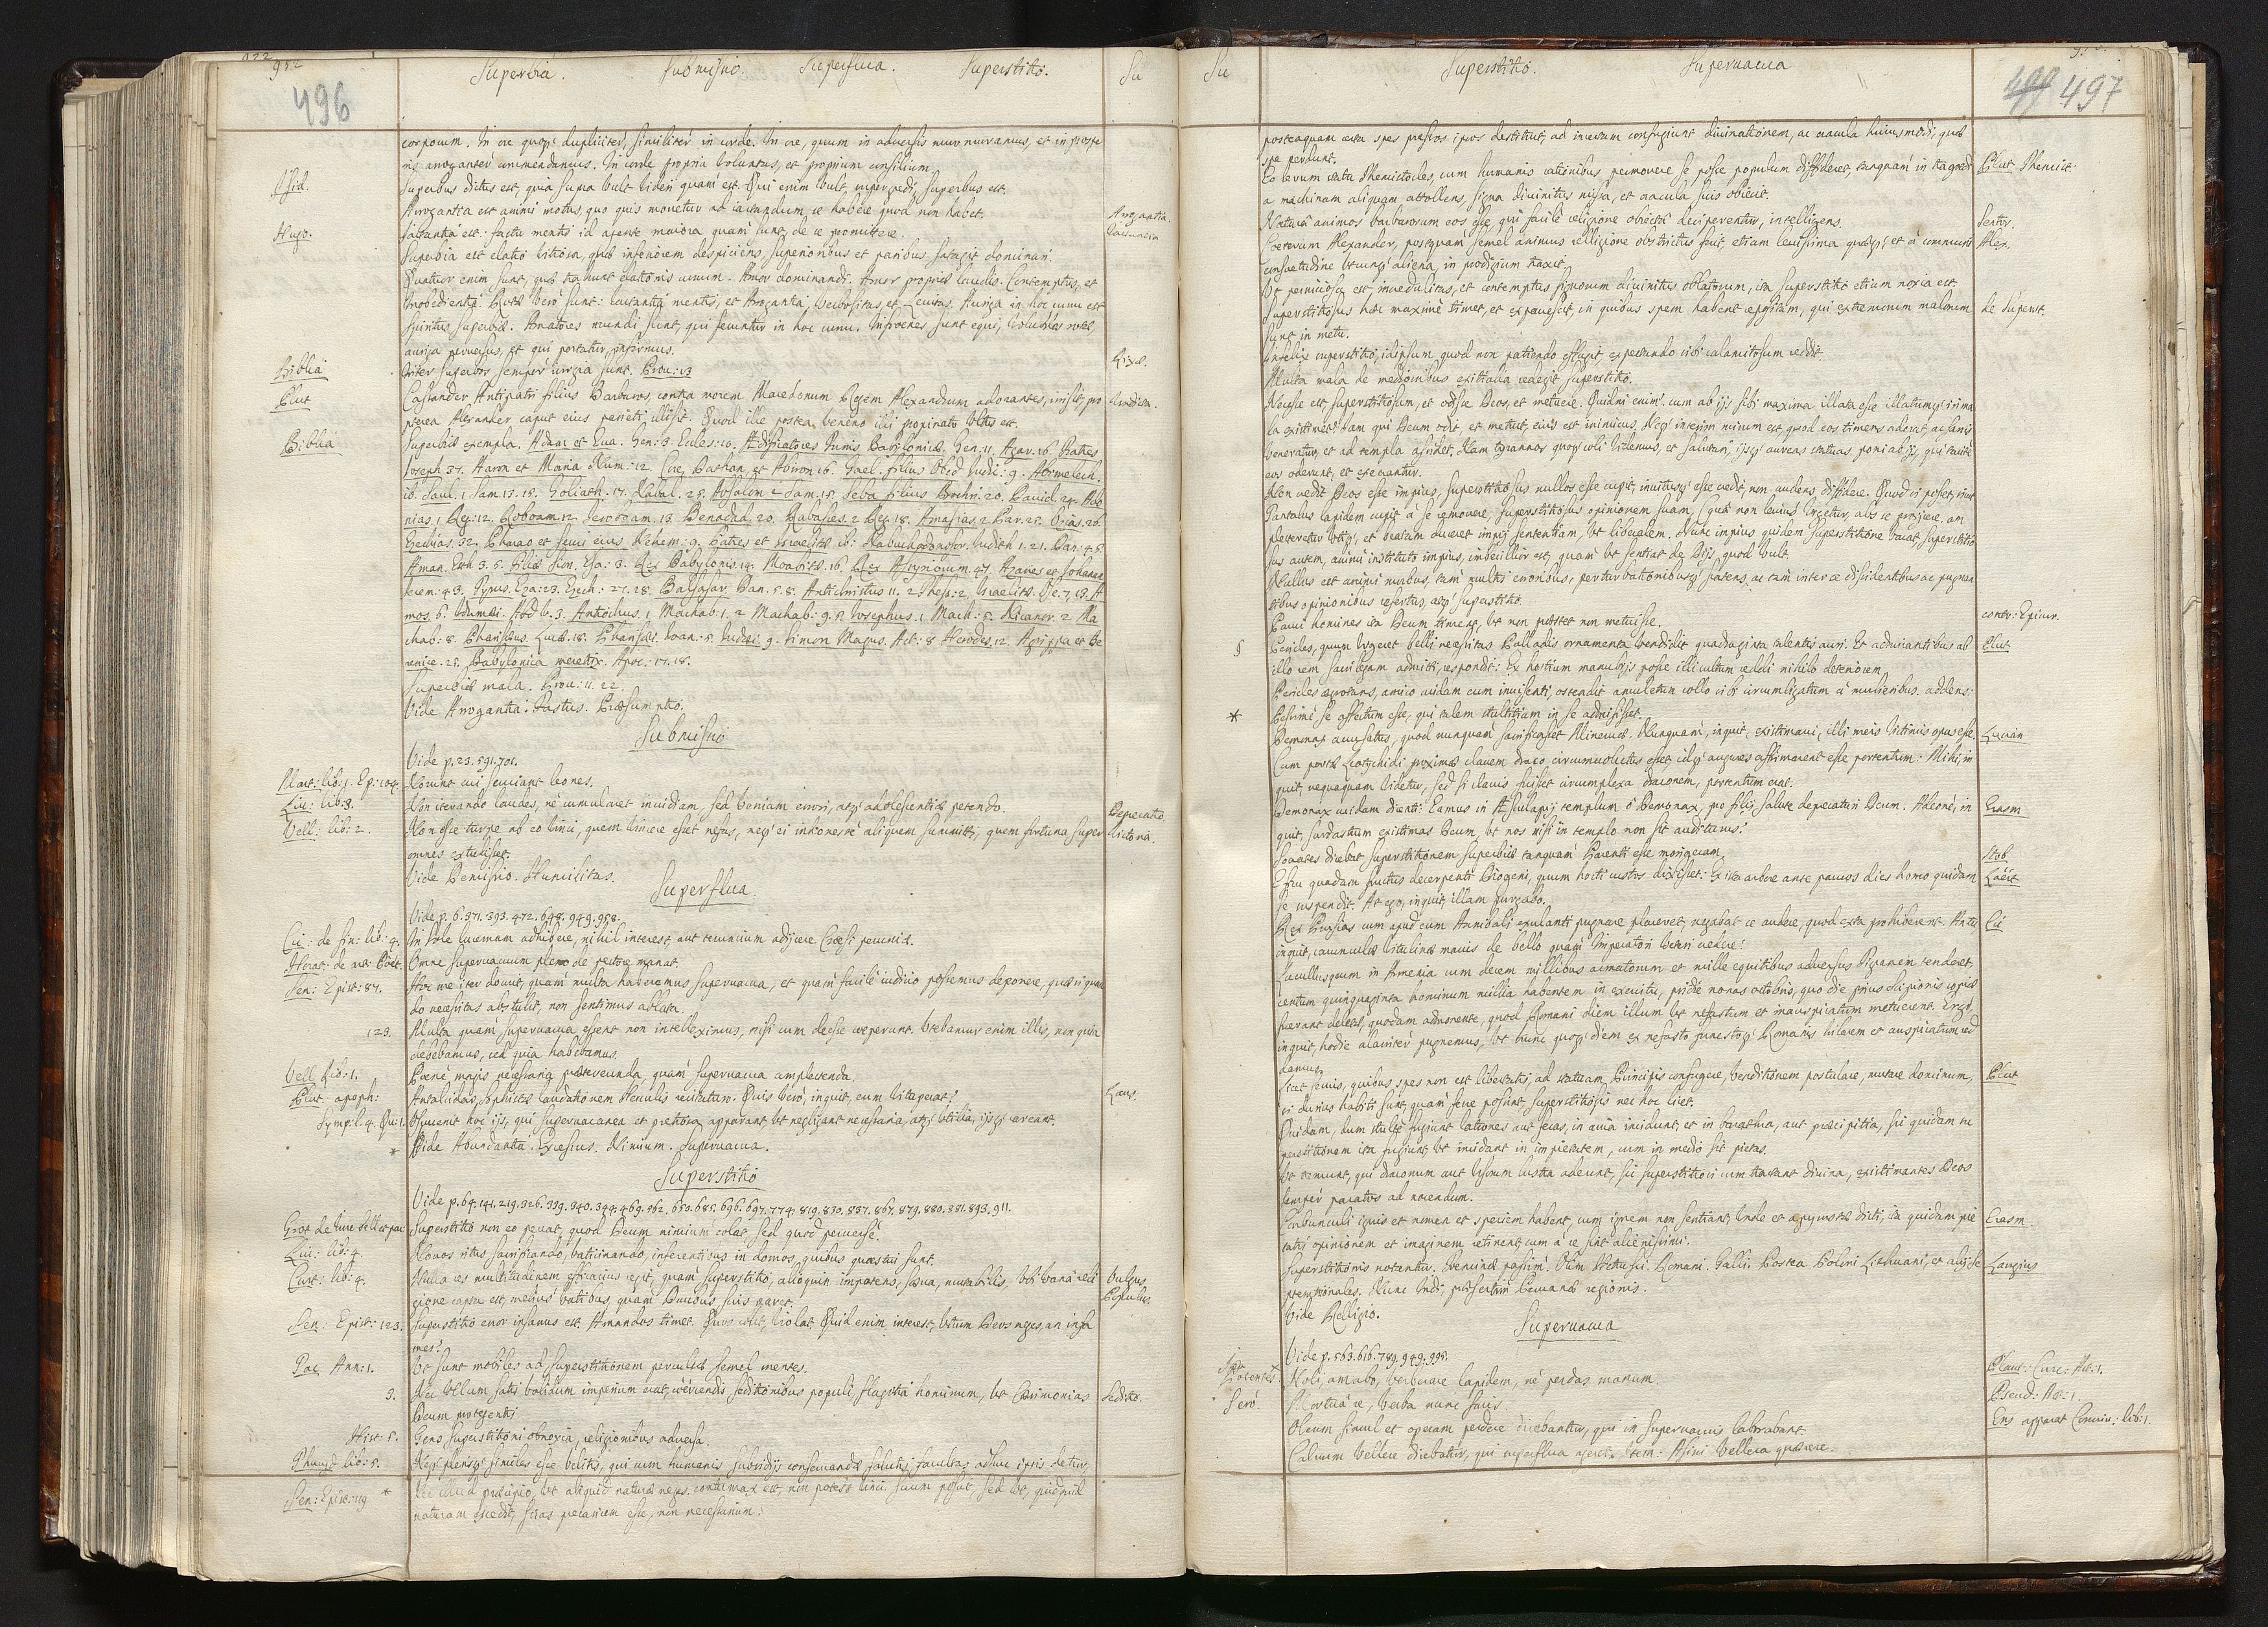 952
496
Superbia. Submissio. Superflua. Superstitio. Su
corporum. In ore quoq; dupliciter, similiter in corde. In ore, quum in adversis murmuramus, et in prospe
ris arroganter commendamus. In corde propria voluntas, et proprium consilium.
Isid. Superbus dictus est, quia supra vult videri quam est. Qui enim vult, supergredi, superbus est.
Arrogantia est animi motus, quo quis movetur ad iactandum, se habere quod non habet. Arrogantia.
Hugo. Iactantia est: fastu mentis id agente maiora quam sunt, de se promittere. Iactantia
Superbia est elatio vitiosa, quae inferiorem despiciens, superioribus et paribus satagit dominari.
Quatuor enim sunt, quae trahunt elationis currum. Amor dominandi. Amor propriae laudis. Contemptus, et
Inobedientia. Rotae vero sunt: Iactantia mentis, et Arogantia, verbositas, et Levitas. Auriga in hoc curru est
spiritus superbiae. Amatores mundi sunt, qui feruntur in hoc curru. Infroenes sunt equi, volubiles rotae,
auriga perversus, et qui portatur, infirmus.
Biblia Inter superbos semper iurgia sunt. Prov: 13 Rixae.
Plut Cassander Antipatri filius Barbaros, contra morem Macedonum Regem Alexandrum adorantes, irrisit, pro
pterea Alexander caput eius parieti illisit. Quod ille postea, veneno illi propinato ultus est.
Biblia Superbiae exempla. Adam et Eva. Gen: 3. Eccles: 10. Aedificatores Turris Babylonicae. Gen. 11. Agar. 16. Fratres
Ioseph 37. Aaron et Maria Num: 12. Core, Dathan, et Abiron 16. Gaal. filius Obed Iudic: 9. Abimelech.
ib. Saul. 1 Sam. 13. 15. Goliath. 17. Nabal. 25. Absalon 2 Sam. 15. Seba filius Bochri. 20. David. 24. Ado
nias. 1 Reg: 12. Roboam. 12. Ieroboam. 13. Benadad. 20. Rabsaces. 2 Reg. 18. Amasias. 2 Par. 25. Ozias. 26.
Ezechias. 32. Pharao et servi eius Nehem: 9. Patres et Israelitae ib: Nabuchodonosor. Iudith 1. 21. Dan: 4. 5.
Aman. Esth 3. 5. Filiae Sion. Esa: 3. Rex Babylonis. 14. Moabitae. 16. Rex Assyriorum. 47. Azarias et Iohanan
Ierem: 43. Tyrus. Eza: 23. Ezech: 27. 28. Baltasar. Dan. 5. 8. Antichristus 11. 2 Thess: 2. Israelitae. Ose. 7. 13. A
mos. 6. Idumaei. Abd. v. 3. Antiochus. 1 Machab: 1. 2 Machab: 9. 5. Iosephus. 1 Mach: 5. Nicanor. 2 Ma
chab: 8. Pharisaeus. Luc. 18. Pharisaei. Ioan: 5. Iudaei. 9. Simon Magus. Act: 8. Herodes. 12. Agrippa et Be
renice. 25. Babylonica meretrix. Apoc: 17. 18.
Superbiae mala. Prov: 11. 22.
Vide Arrogantia. Fastus. Praesumptio.
Submissio
Vide p. 23. 591. 701.
Mart: lib: 1. Ep: 104. Norunt cui serviant leones.
Liv: lib: 3. Non iterando laudes, ne cumularet invidiam, sed veniam errori, atq; adolescentiae petendo. Deprecatio
Vell: lib: 2. Non esse turpe ab eo vinci, quem vincere esset nefas, neq; ei inhoneste aliquem summitti, quem fortuna super Victoria.
omnes extulisset.
Vide Demissio. Humilitas.
Superflua
Vide p. 6. 371. 393. 472. 648. 949. 958.
Cic: de fin: lib: 4. In sole lucernam adhibere, nihil interest, aut teruncium adijcere Croesi pecuniae.
Horat: de art: Poet: Omne supervacuum pleno de pectore manat.
Sen: Epist: 87. Hoc me iter docuit, quam multa haberemus supervacua, et quam facile iudicio possemus deponere, quae si quan
do necessitas abstulit, non sentimus ablata.
123. Multa quam supervacua essent non intelleximus, nisi cum deesse coeperunt. Utebamur enim illis, non quia
debebamus, sed quia habebamus.
Vell Lib: 1. Pene magis necessaria praetereunda, quam supervacua amplectenda.
Plut: apoph: Antalcidas, Sophistae laudationem Herculis recitaturo. Quis vero, inquit, eum vituperat? Laus.
Sympl: 4. Qu: 1. Usuvenit hoc ijs, qui supervacanea et pretiosa apparant, ut negligant necessaria, atq; utilia, ijsq; careant.
Vide Abundantia. Excessus. Nimium. Supervacua.
*
Superstitio
Vide p. 64. 141. 219. 326. 339. 340. 344. 469. 562. 650. 685. 696. 697. 774. 819. 830. 857. 867. 879. 880. 881. 893. 911.
Grot de Iure belli et pac Superstitio non eo peccat, quod Deum nimium colat, sed quod perverse.
Liv: lib: 4. Novos ritus sacrificando, vaticinando, inferentibus in domos, quibus quaestui sunt.
Curt: lib: 4. Nulla res multitudinem efficacius regit, quam superstitio, alioquin impotens, saeva, mutabilis. Ubi vana reli Vulgus
gione capta est, melius vatibus, quam Ducibus suis paret. Populus.
Sen: Epist: 123. Superstitio error insanus est. Amandos timet. Quos colit, violat. Quid enim interest, utrum Deos neges, an infa
mes?
Tac Ann: 1. Ut sunt mobiles ad superstitionem perculsae semel mentes.
3. Nec ullum satis validum imperium erat, coercendis seditionibus populi, flagitia hominum, ut Caerimonias Seditio.
Deum protegentis.
Hist: 5. Gens superstitioni obnoxia, religionibus adversa.
Thucyd lib: 5. Neq; plerisq; similes esse velitis, qui cum humanis subsidijs conservandae salutis facultas adhuc ipsis detur,
Sen: Epist: 119 * Nec illud praecipio, ut aliquid naturae neges. contumax est, non potest vinci, suum poscit, sed ut, quidquid
naturam excedit, scias precarium esse, non necessarium.
Su Superstitio. Supervacua
499 497
posteaquam certa spes pressos ipsos destituit, ad incertam confugiunt divinationem, ac oracula huiusmodi, quae
spe perdunt.
Eo rerum statu Themistocles, cum humanis rationibus permovere se posse populum diffideret, tanquam in tragoedi Plut Themist:
a machinam aliquam attollens, signa divinitus missa, et oracula suis obiecit.
Natura animos barbarorum eos esse, qui facile religione obiecta deciperentur, intelligens. Sertor.
Coeterum Alexander, postquam semel animus relligione obstrictus fuit, etiam levissima quaeq; et a communi Alex.
consuetudine utcunq; aliena, in prodigium traxit.
Ut perniciosa est, incredulitas, et contemptus signorum divinitus oblatorum, ita superstitio etiam noxia est.
Superstitiosus hac maxime timet, et expavescit in quibus spem habent repositam, qui extremorum malorum de Superst.
sunt in metu.
Infelix superstitio, idipsum quod non patiendo effugit expectando sibi calamitosum reddit.
Multa mala de mediocribus exitialia redegit superstitio.
Necesse est superstitiosum, et odisse Deos, et metuere. Quidni enim? cum ab ijs sibi maxima illata esse illatumq; iri ma
la existimet? Iam qui Deum odit et metuit, eius est inimicus. Neq; interim mirum est quod eos timens adorat, ac sacris
veneratur, et ad templa assidet. Nam tyrannos quoq; coli videmus, et salutari, ijsq; aureas statuas poni ab ijs, qui tacite
eos oderunt, et execrantur.
Non credit Deos esse impius, superstitiosus nullos esse cupit, invitusq; esse credit, non audens diffidere. Quod si posset, sicut
Tantalus lapidem cupit a se removere, superstitiosus opinionem suam, (qua non levius urgetur, abs se projicere, am
plecteretur utiq;, et beatam duceret impij sententiam, ut liberalem. Nunc impius quidem superstitione vacat, superstitio
sus autem, animi instituto impius, imbecillior est, quam ut sentiat de Dijs, quod vult.
Nullus est animi morbus, tam multis erroribus, perturbationibusq; scatens, ac tam inter se dissidentibus ac pugnan
tibus opinionibus refertus, atq; superstitio.
Pauci homines ita Deum timent, ut non praestet non metuisse. contr: Epicur.
§ Pericles, quum urgeret belli necessitas Palladis ornamenta vendidit quadraginta talentis auri. Et admirantibus ab Plut
illo rem sacrilegam admitti, respondit: Ex hostium manubijs posse illi cultum reddi nihilo deteriorem.
Pericles aegrotans, amico cuidam eum invisenti, ostendit amuletum collo sibi circumligatum a mulieribus, addens:
* Pessime se affectum esse, qui talem stultitiam in se admisisset.
Demonax accusatus, quod nunquam sacrificasset Minervae. Nunquam, inquit, existimavi, illi meis victimis opus esse Lucian
Cum portae Leotychidi proximae clavem draco circumvolutus esset, idq; augures affirmarent esse portentum: Mihi, in
quit, nequaquam videtur, sed si clavis fuisset circumplexa draconem, portentum erat.
Demonax cuidam dicenti: Eamus in Aesculapij templum o Demonax, pro filij salute deprecaturi Deum. Adeone, in Erasm
quit, surdastrum existimas Deum, ut nos nisi in templo non sit auditurus?
Socrates dicebat superstitionem superbiae tanquam Parenti esse morigeram. Stob.
E ficu quadam fructus decerpenti Diogeni, quum horti custos dixisset: Ex ista arbore ante paucos dies homo quidam Laert
se suspendit. At ego, inquit, illam purgabo.
Rex Prusias cum apud eum Annibali exulanti pugnare placeret, negabat se audere, quod exta prohiberent. An tu Cic
inquit, carunculae vitulinae mavis de bello quam Imperatori veteri credere?
Lucullus quum in Armenia cum decem millibus armatorum et mille equitibus adversus Tigranem tenderet,
centum quinquaginta hominum millia habentem in exercitu, pridie nonas octobris, quo die prius Scipionis copiae
fuerant deletae, quodam admonente, quod Romani diem illum ut nefastum et inauspicatum metuerent. Ergo,
inquit, hodie alacriter pugnemus, ut hunc quoq; diem ex nefasto funestoq; Romanis hilarem et auspicatum red
damus.
Licet servis, quibus spes non est libertatis, ad statuam Principis confugere, venditionem postulare, mutare dominum, Plut
si durius habiti sunt, quam ferre possunt superstitiosis nec hoc licet.
Quidam, dum stulte fugiunt latrones aut feras, in avia incidunt, et in barathra, aut praecipitia, sic quidam su
perstitionem ita fugiunt, ut incidant in impietatem, cum in medio sit pietas.
Ut tremunt, qui draconum aut ursum lustra adeunt, sic superstitiosi cum tractant divina, existimantes Deos
semper paratos ad nocendum.
Carbunculi ignis et nomen et speciem habent, cum ignem non sentiant, unde et apyrustae dicti, ita quidam pie Erasm.
tatis opinionem et imaginem retinent, cum a re sint alienissimi.
Superstitionis notantur. Germanae passim. Olim Hetrusci. Romani. Galli. Postea Poloni Lithuani, et alij se Langius
ptemtrionales. Nunc Indi, praesertim Peruanae regionis.
Vide Relligio.
Supervacua
Vide p. 563. 616. 789. 949. 995.
Potentes. Noli, amabo, verberare lapidem, ne perdas manum. Plaut: Curc: Act: 1.
Sero. Mortua re, verba nunc facis. Pseud: Act: 1.
Oleum simul et operam perdere dicebantur, qui in supervacuis laborabant. Ens apparat Conviv: lib: 1.
Calvum vellere dicebatur, qui superflua ageret. Item: Asini vellera quaerere.